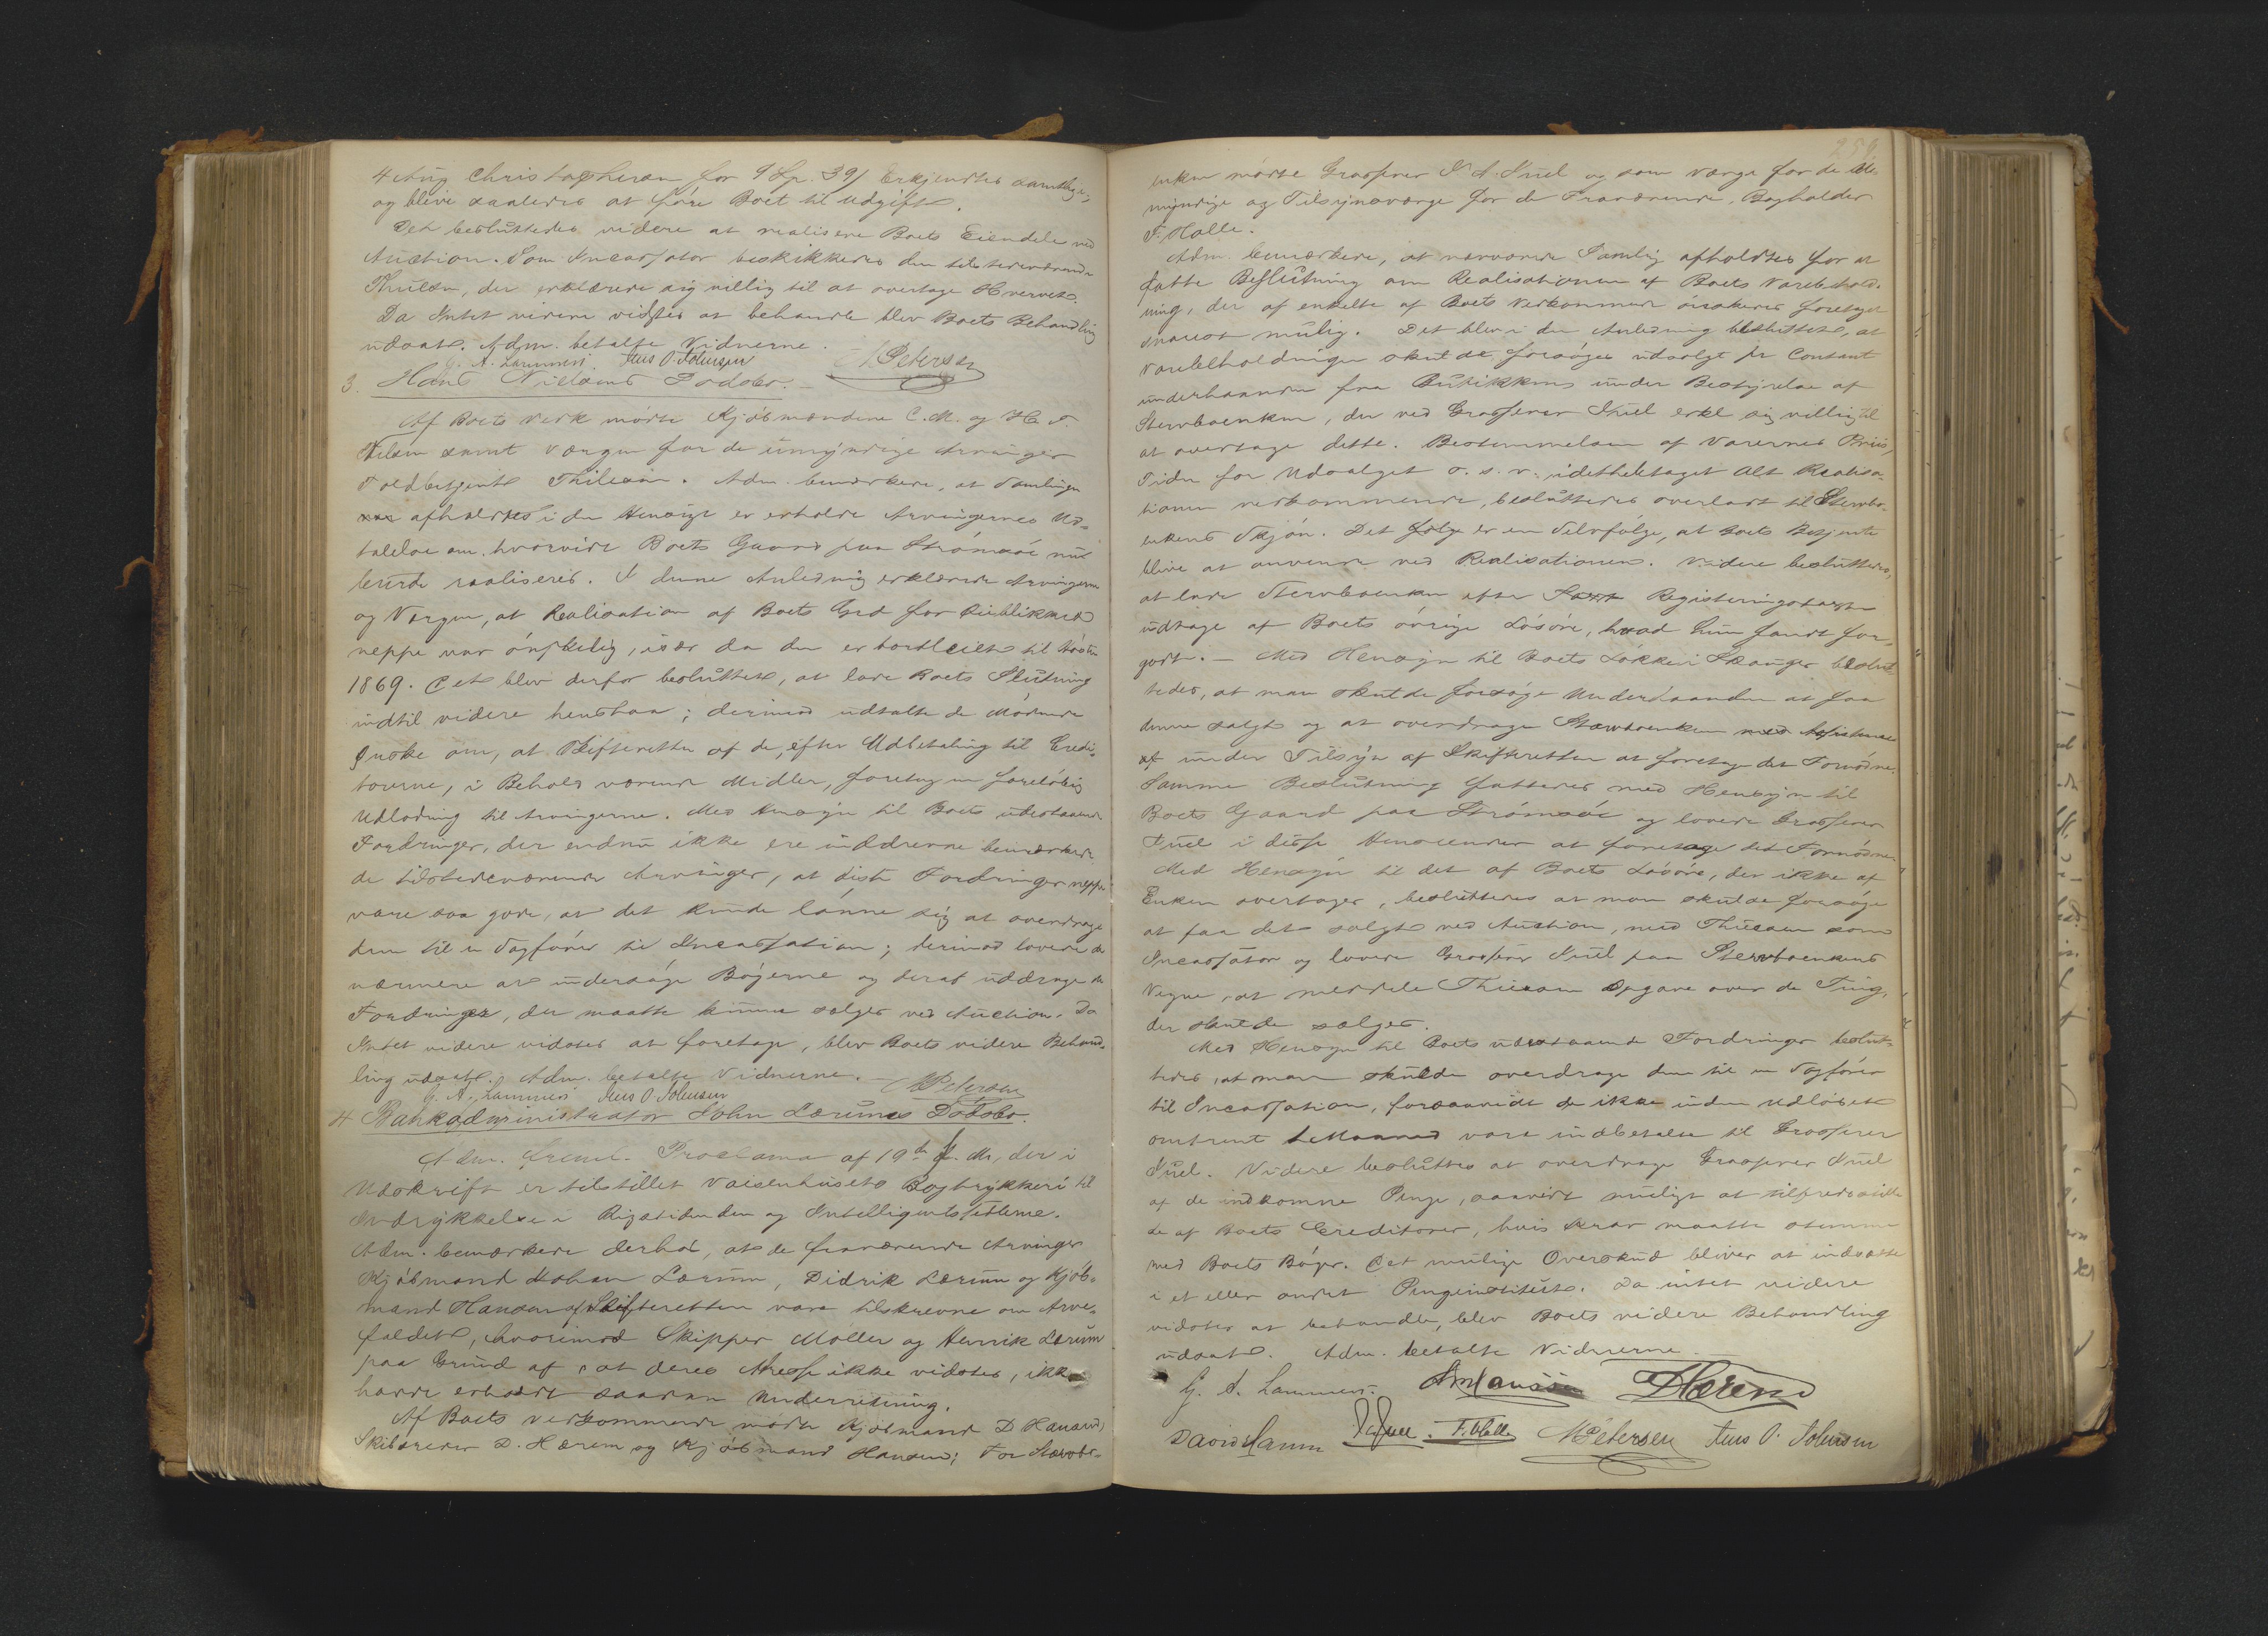 4 Aug Christophersen for 9 Sp. 39 / Erkjendtes samtlige,
og blive saaledes at føre Boet til Udgift.
Det besluttedes videre at realisere Boets Eiendele ved
Auction. Som Incassator beskikkedes den tilstedeværende
Thuesen, der erklærede sig villig til at overtage Hvervet.
Da Intet videre vidstes at behandle blev Boets Behandling
udsat. Adm. betalte Vidnerne.
G. A. Lammers. Jens O. Johnsen MPetersen
3. Hans Nielsens Dødsbo.
Af Boets Vedk mødte Kjøbmændene C. M. og H. J.
Nielsen samt Værgen for de umyndige Arvinger
Toldbetjent Thilesen. Adm. bemærkede, at Samlingen
afholdtes i den Hensigt at erholde Arvingernes Ud-
talelse om, hvorvidt Boets Gaard paa Strømsøe nu
burde realiseres. I denne Anledning erklærede Arvingerne
og Værgen, at Realisation af Boets Grd for Øieblikket
neppe var ønskelig, især da den er bortleiet til Høsten
1869. Det blev derfor besluttet, at lade Boets Slutning
indtil videre henstaa; derimod udtalte de Mødende
Ønske om, at Skifteretten af de, efter Udbetaling til Credi-
torerne, i Behold værende Midler, foretog en foreløbig
Udlodning til Arvingerne. Med Hensyn til Boets udestaaende
Fordringer, der endnu ikke ere inddrevne bemærkede
de tilstedeværende Arvinger, at disse Fordringer neppe
vare saa gode, at det kunde lønne sig at overdrage
dem til en Sagfører til Incassation; derimod lovede de
nærmere at undersøge Bøgerne og deraf uddrage de
Fordringer, der maatte kunne sælges ved Auction. Da
Intet videre vidstes at foretage, blev Boets videre Behand-
ling udsat. Adm. betalte Vidnerne.
G. A. Lammers Jens O Johnsen MPetersen
4 Bankadministrator John Lærums Dødsbo.
Adm. freml. Proclama af 19de d. M, der i
Udskrift er tilstillet Vaisenhusets Bogtrykkeri til
Indrykkelse i Rigstidenden og Intelligentssedlerne.
Adm. bemærkede derhos, at de fraværende Arvinger
Kjøbmand Johan Lærum, Didrik Lærum og Kjøb-
mand Hansen af Skifteretten vare tilskrevne om Arve-
faldet, hvorimod Skipper Møller og Henrik Lærum
paa Grund af, at deres Adresse ikke vidstes, ikke
havde erholdt saadan Underretning.
Af Boets Vedkommende mødte Kjøbmand D Hanand,
Skibsreder D. Hærem og Kjøbmand Hansen; For Stervbo-
259
enken mødte Grosserer J. A. Juel og som Værge for de U-
myndige og Tilsynsværge for de Fraværende, Bogholder
F. Holle.
Adm. bemærkede, at nærværende Samling afholdtes for at
fatte Beslutning om Realisationen af Boets Varebehold-
ning, der af enkelte af Boets Vedkommende ønskedes foretaget
snarest mulig. Det blev i den Anledning besluttet, at
Varebeholdningen skulde forsøges udsolgt pr Contant
underhaanden fra Butikken under Bestyrelse af
Stervboenken, der ved Grosserer Juel erkl sig villig til
at overtage dette. Bestemmelsen af Varernes Priis,
Tiden for Udsalget o. s. v. idetheletaget Alt Realisa-
tionen vedkommende, besluttedes overladt til Stervbo-
enkens Skjøn. Det er en Selvfølge, at Boets Betjente
blive at anvende ved Realisationen. Videre besluttedes,
at lade Stervboenken efter Registreringstaxten
udtage af Boets øvrige Løsøre, hvad hun fandt for-
godt. — Med Hensyn til Boets Løkken i Skanger beslut-
tedes, at man skulde forsøge Underhaanden at faa
denne solgt og at overdrage Stervboenken
under Tilsyn af Skifteretten at foretage det Fornødne.
Samme Beslutning fattedes med Hensyn til
Boets Gaard paa Strømsøe og lovede Grosserer
Juel i disse Henseender at foretage det Fornødne.
Med Hensyn til det af Boets Løsøre, der ikke af
Enken overtages, besluttedes at man skulde forsøge
at faa det solgt ved Auction, med Thuesen som
Incassator og lovede Grosserer Juel paa Stervboenkens
Vegne, at meddele Thuesen Opgave over de Ting,
der skulde sælges.
Med Hensyn til Boets udestaaende Fordringer beslut-
tedes, at man skulde overdrage dem til en Sagfører
til Incassation, forsaavidt de ikke inden Udløbet
omtrent 1 Maaned vare indbetalte til Grosserer
Juel. Videre besluttes at overdrage Grosserer Juel
af de indkomne Penge, saavidt muligt at tilfredsstille
de af Boets Creditorer, hvis Krav maatte stemme
med Boets Bøger. Det mulige Overskud bliver at indsætte
i et eller andet Pengeinstitut. Da intet videre
vidstes at behandle, blev Boets videre Behandling
udsat. Adm. betalte Vidnerne.
G. A. Lammers. Hansen DHærem
David Hanun JAJuel. F. Holle MPetersen Jens O. Johnsen